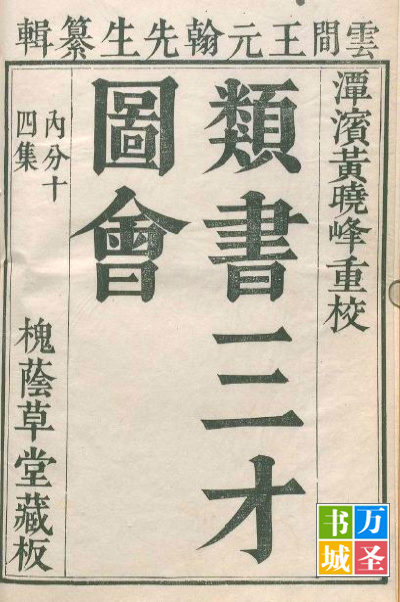 雲間王元翰先生纂輯
潭濱黃曉峰重校
類書三才
圖會
內分十
四集
槐蔭草堂藏板
万圣
书城